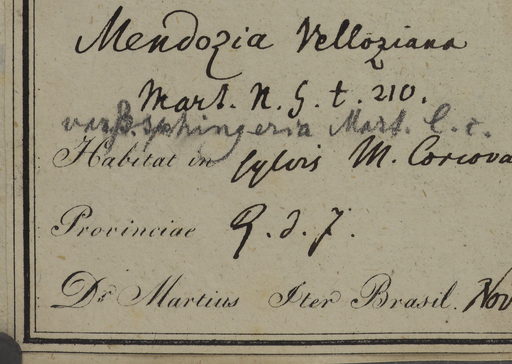 Mendozia Velloziana
Mart. N. G. t. 210.
var β. sphingeria Mart. l. c.
Habitat in sylvis M. Corcova
Provinciae R. d. J.
Dr. Martius Iter Brasil. Nov